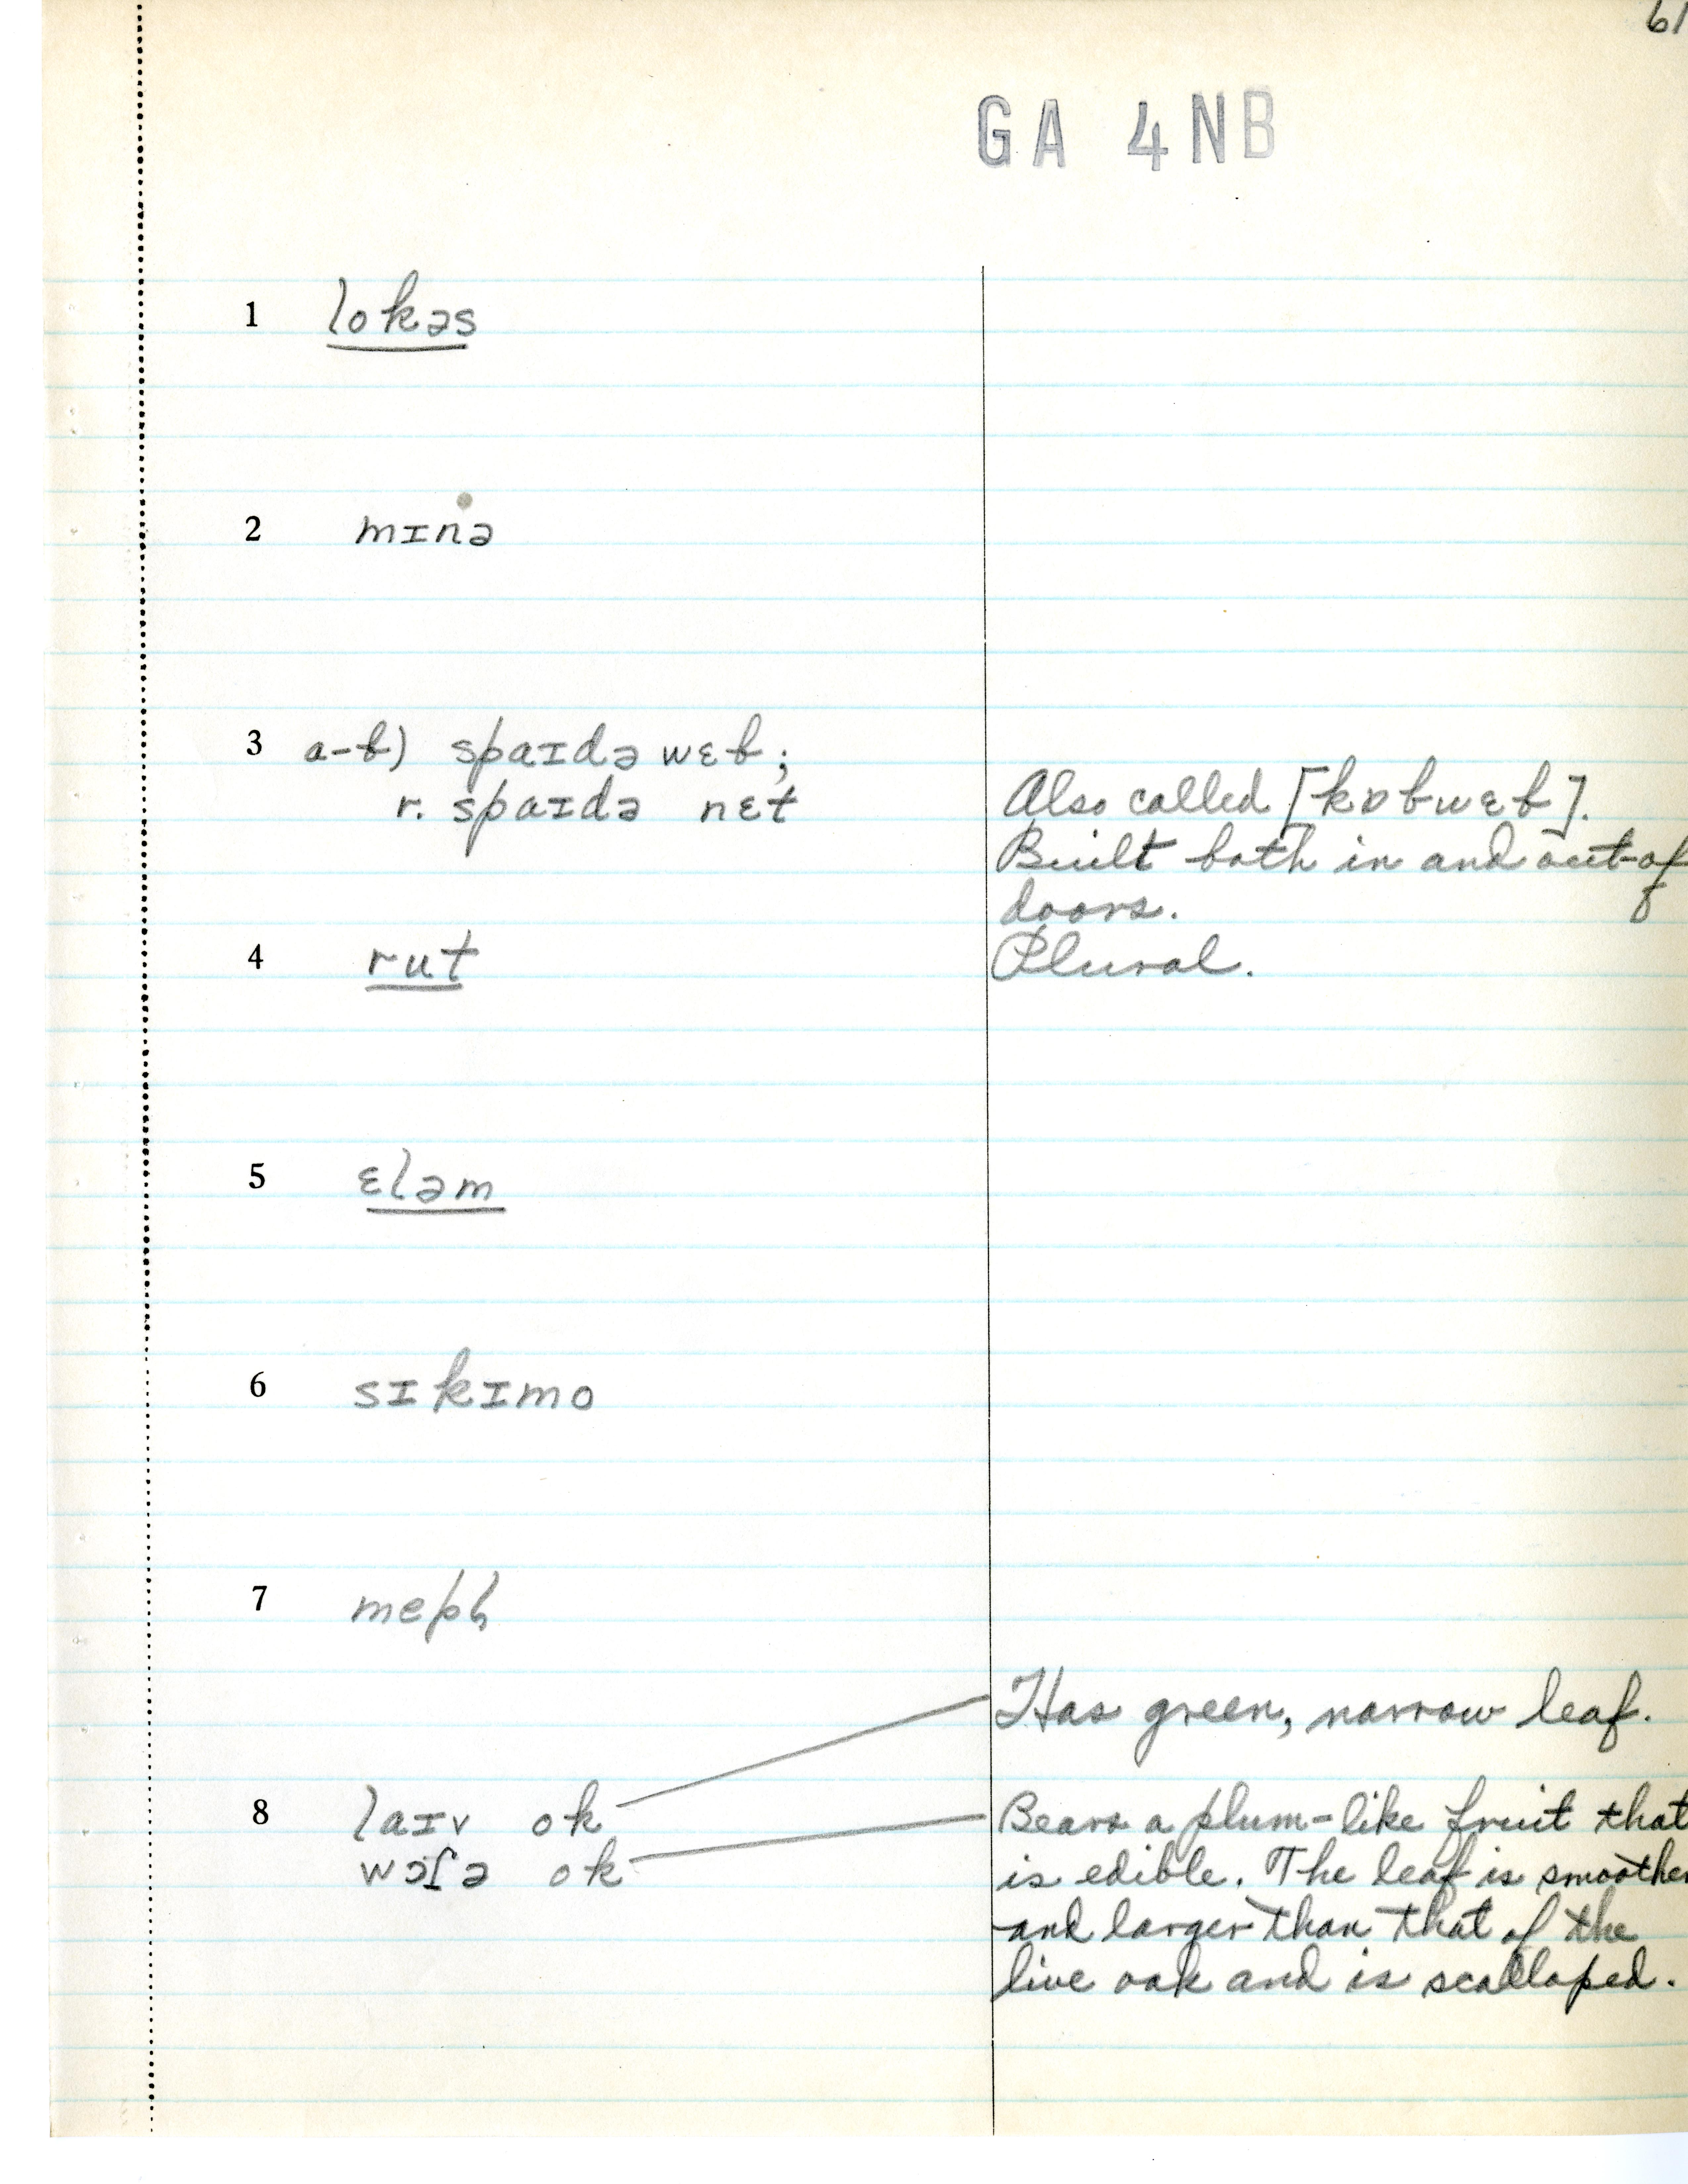 61
GA 4NB
1 lokəs
2 mɪnə
3 a-b) spaɪdə wɛb;
r. spaɪdə nɛt
Also called [kɒbwɛb].
Built both in and out-of
doors.
4 rut
Plural.
5 ɛləm
6 sɪkɪmo
7 mepl̩
Has green, narrow leaf.
8 laɪv ok
wɔɾə ok
Bears a plum-like fruit that
is edible. The leaf is smoother
and larger than that of the
live oak and is scalloped.